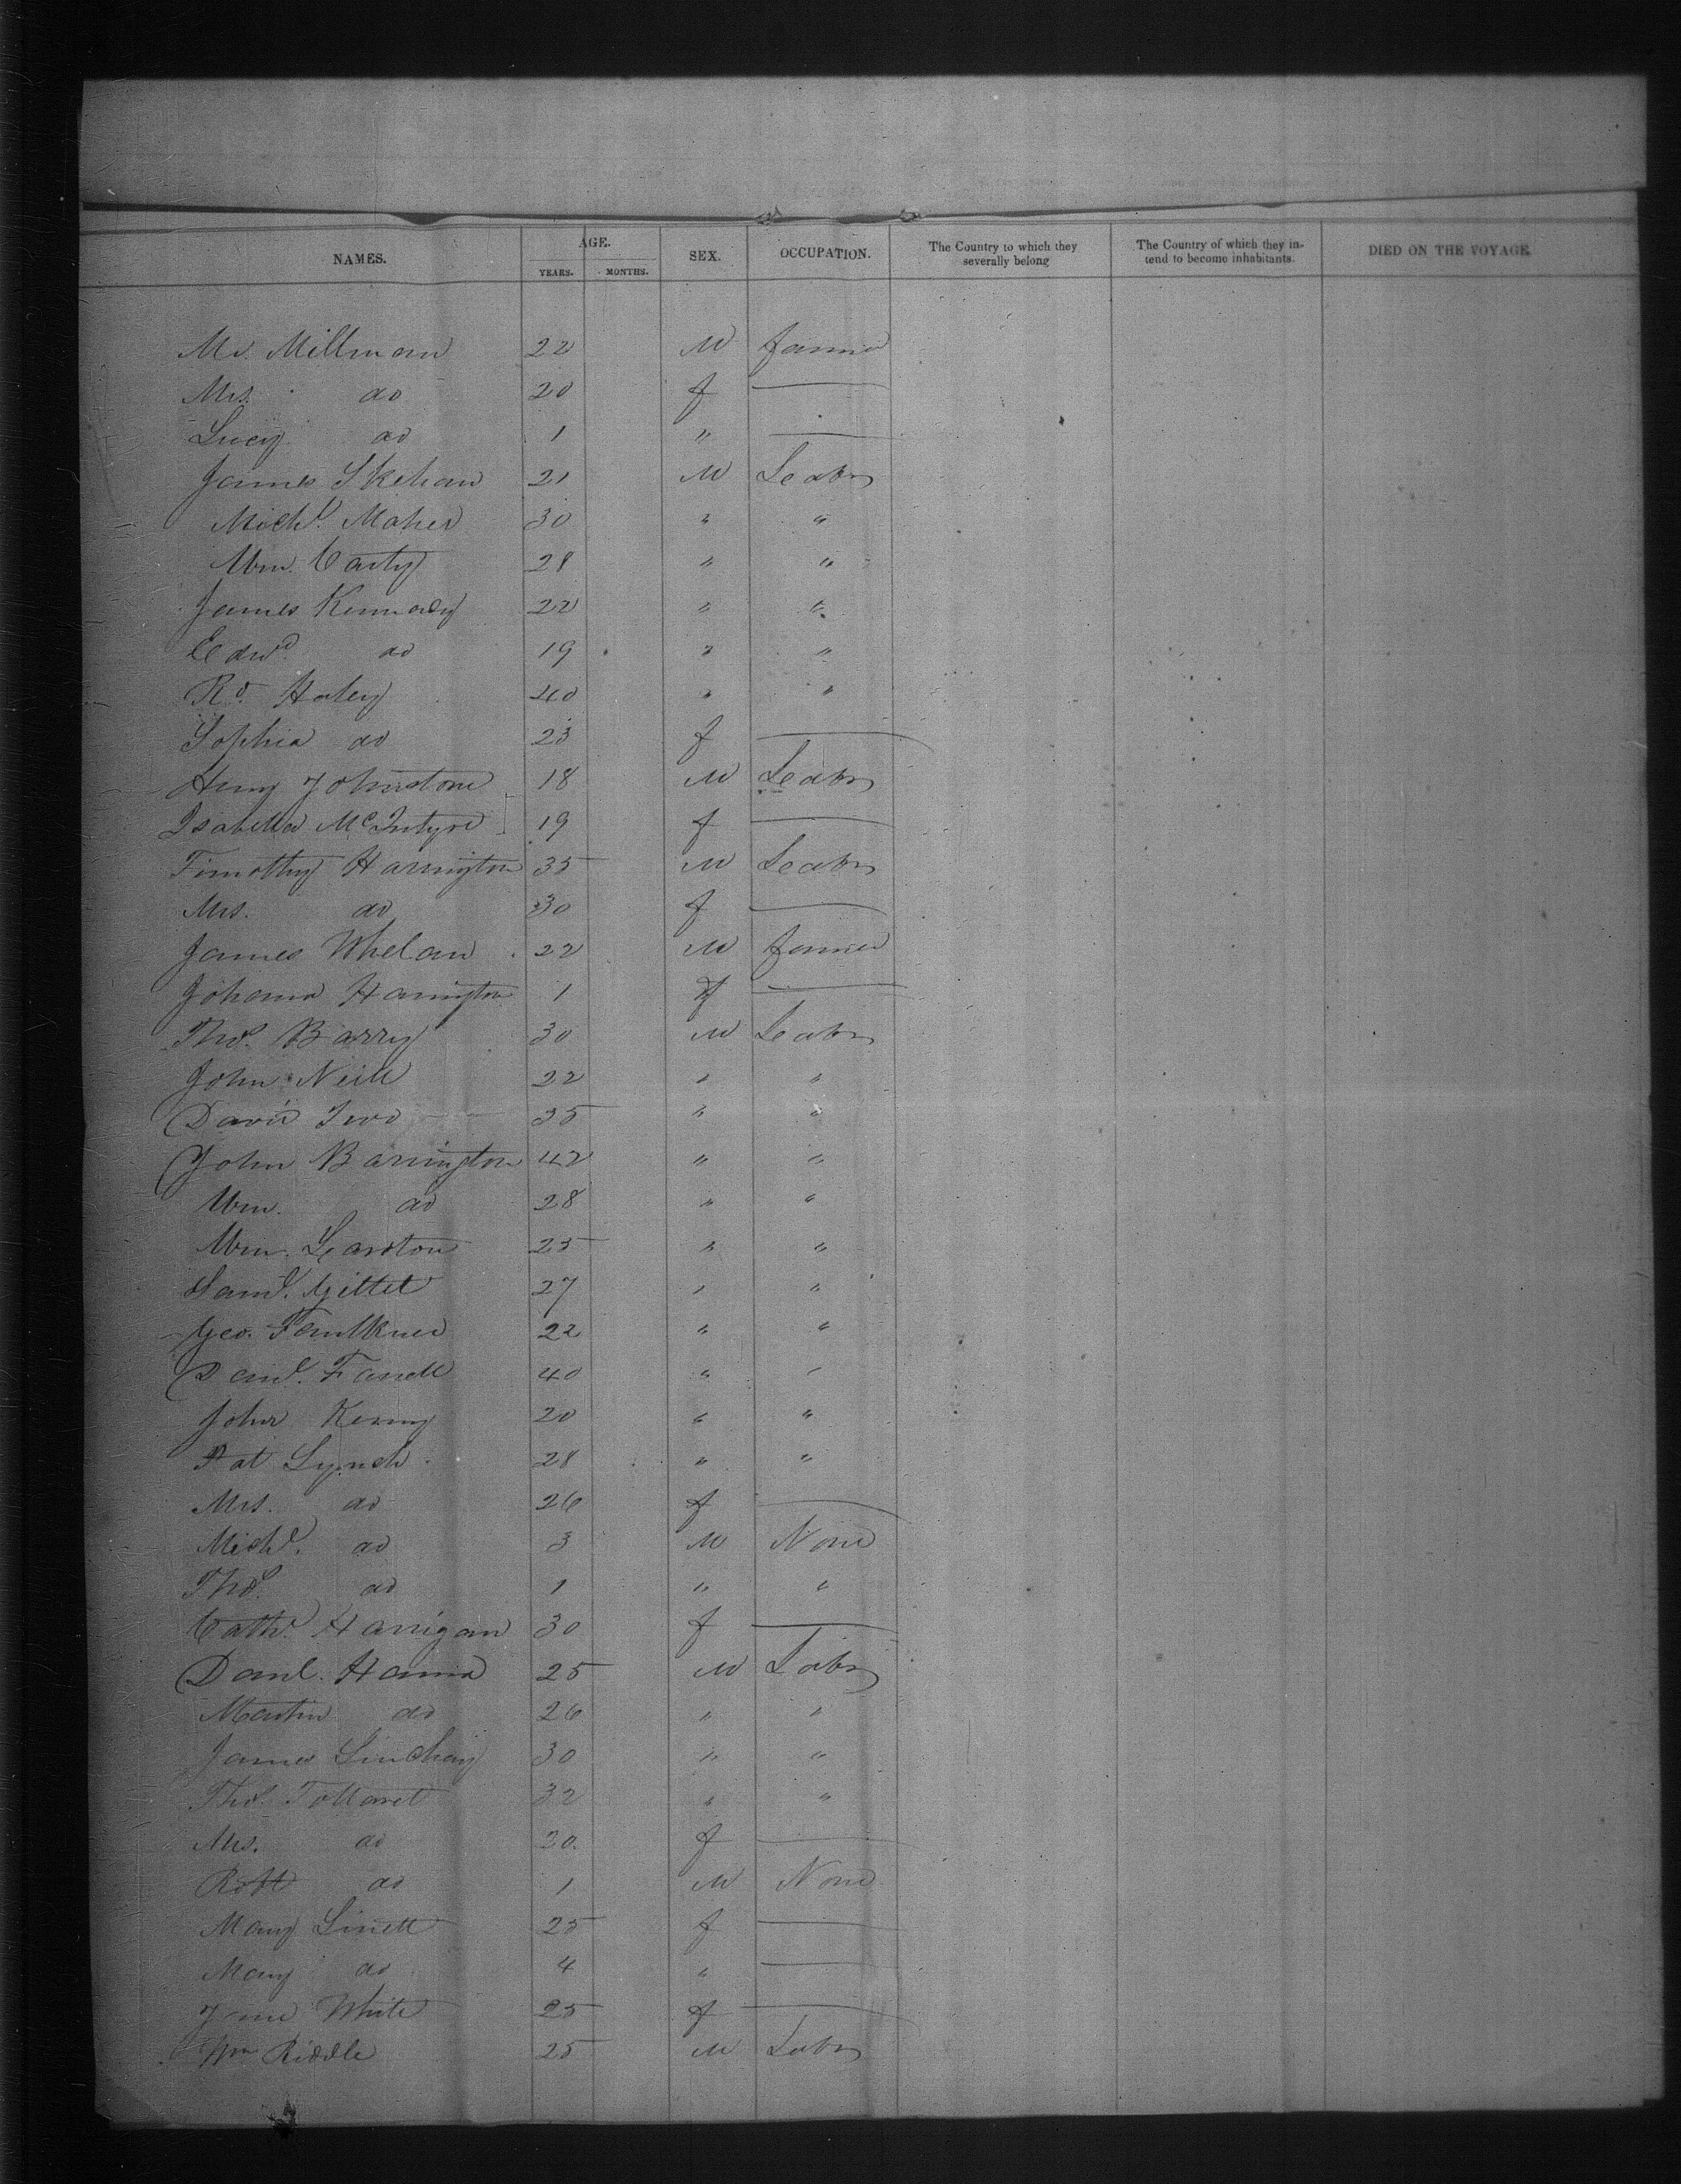 NAMES. AGE. SEX. OCCUPATION. The Country to which they severally belong The Country of which they intend to become inhabitants. DIED ON THE VOYAGE.
YEARS. MONTHS.
Mr. Millman 22 M farmer
Mrs. do 20 f —
Lucy do 1 " —
James Skehan 21 M Leabr
Michl. Maher 30 " "
Wm. Carty 28 " "
James Kennady 22 " "
Edwd. do 19 " "
Rd. Haley 40 " "
Sophia do 23 f —
Henry Johnstone 18 M Leabr
Isabella McIntyre 19 f —
Timothy Harrington 35 M Leabr
Mrs. do 30 f —
James Whelan 22 M farmer
Johanna Harrington 1 f —
Thos. Barry 30 M Leabr
John Neill 22 " "
David 35 " "
John Barrington 42 " "
Wm. do 28 " "
Wm. 25 " "
Saml. Gillet 27 " "
Geo. Faulkner 22 " "
Danl. Farrell 40 " "
John Kenny 20 " "
Pat Lynch 28 " "
Mrs. do 26 f —
Michl. do 3 M None
Thos. do 1 " "
Cathe. Harrigan 30 f —
Danl. Hanna 25 M Labr
Martin do 26 " "
James 30 " "
Thos. 32 " "
Mrs. do 20 f —
Robt do 1 M None
Mary Linett 25 f —
Mary do 4 " —
Jane White 25 f —
Wm Riddle 25 M Labr